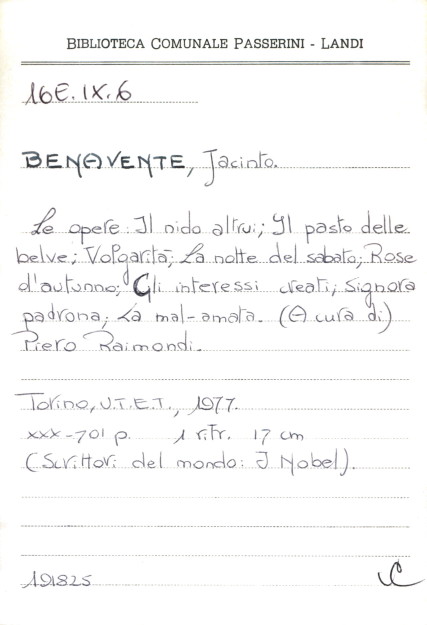 BIBLIOTECA COMUNALE PASSERINI - LANDI
16E.IX.6
BENAVENTE, Jacinto.
Le opere: Il nido altrui; Il pasto delle
belve; Volgarità; La notte del sabato; Rose
d'autunno; Gli interessi creati; Signora
padrona; La mal-amata. (A cura di)
Piero Raimondi.
Torino, U.T.E.T., 1977.
xxx-701 p. 1 ritr. 17 cm
(Scrittori del mondo: I Nobel).
191825